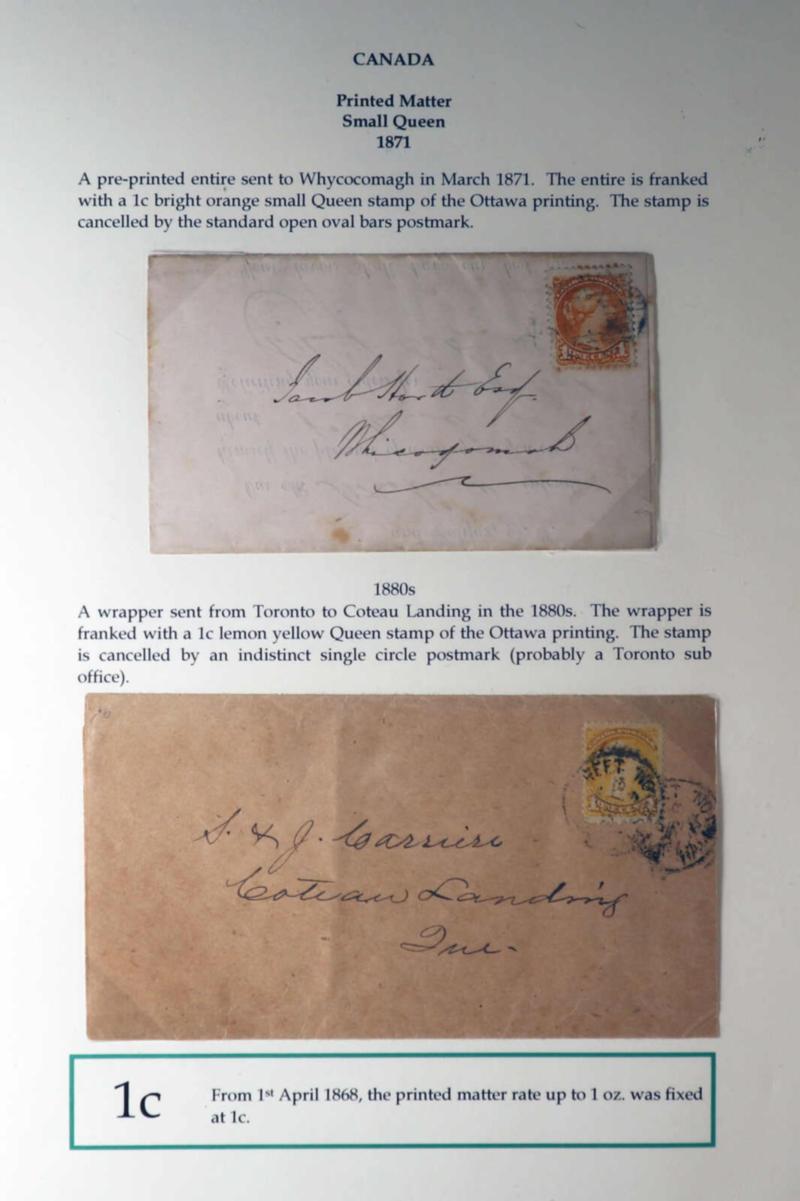 CANADA
Printed Matter
Small Queen
1871
A pre-printed entire sent to Whycocomagh in March 1871. The entire is franked
with a 1c bright orange small Queen stamp of the Ottawa printing. The stamp is
cancelled by the standard open oval bars postmark.
Jacob Hart Esq.
Whicogomah
1880s
A wrapper sent from Toronto to Coteau Landing in the 1880s. The wrapper is
franked with a 1c lemon yellow Queen stamp of the Ottawa printing. The stamp
is cancelled by an indistinct single circle postmark (probably a Toronto sub
office).
S. & J. Carriere
Coteau Landing
Que-
1c
From 1st April 1868, the printed matter rate up to 1 oz. was fixed
at 1c.